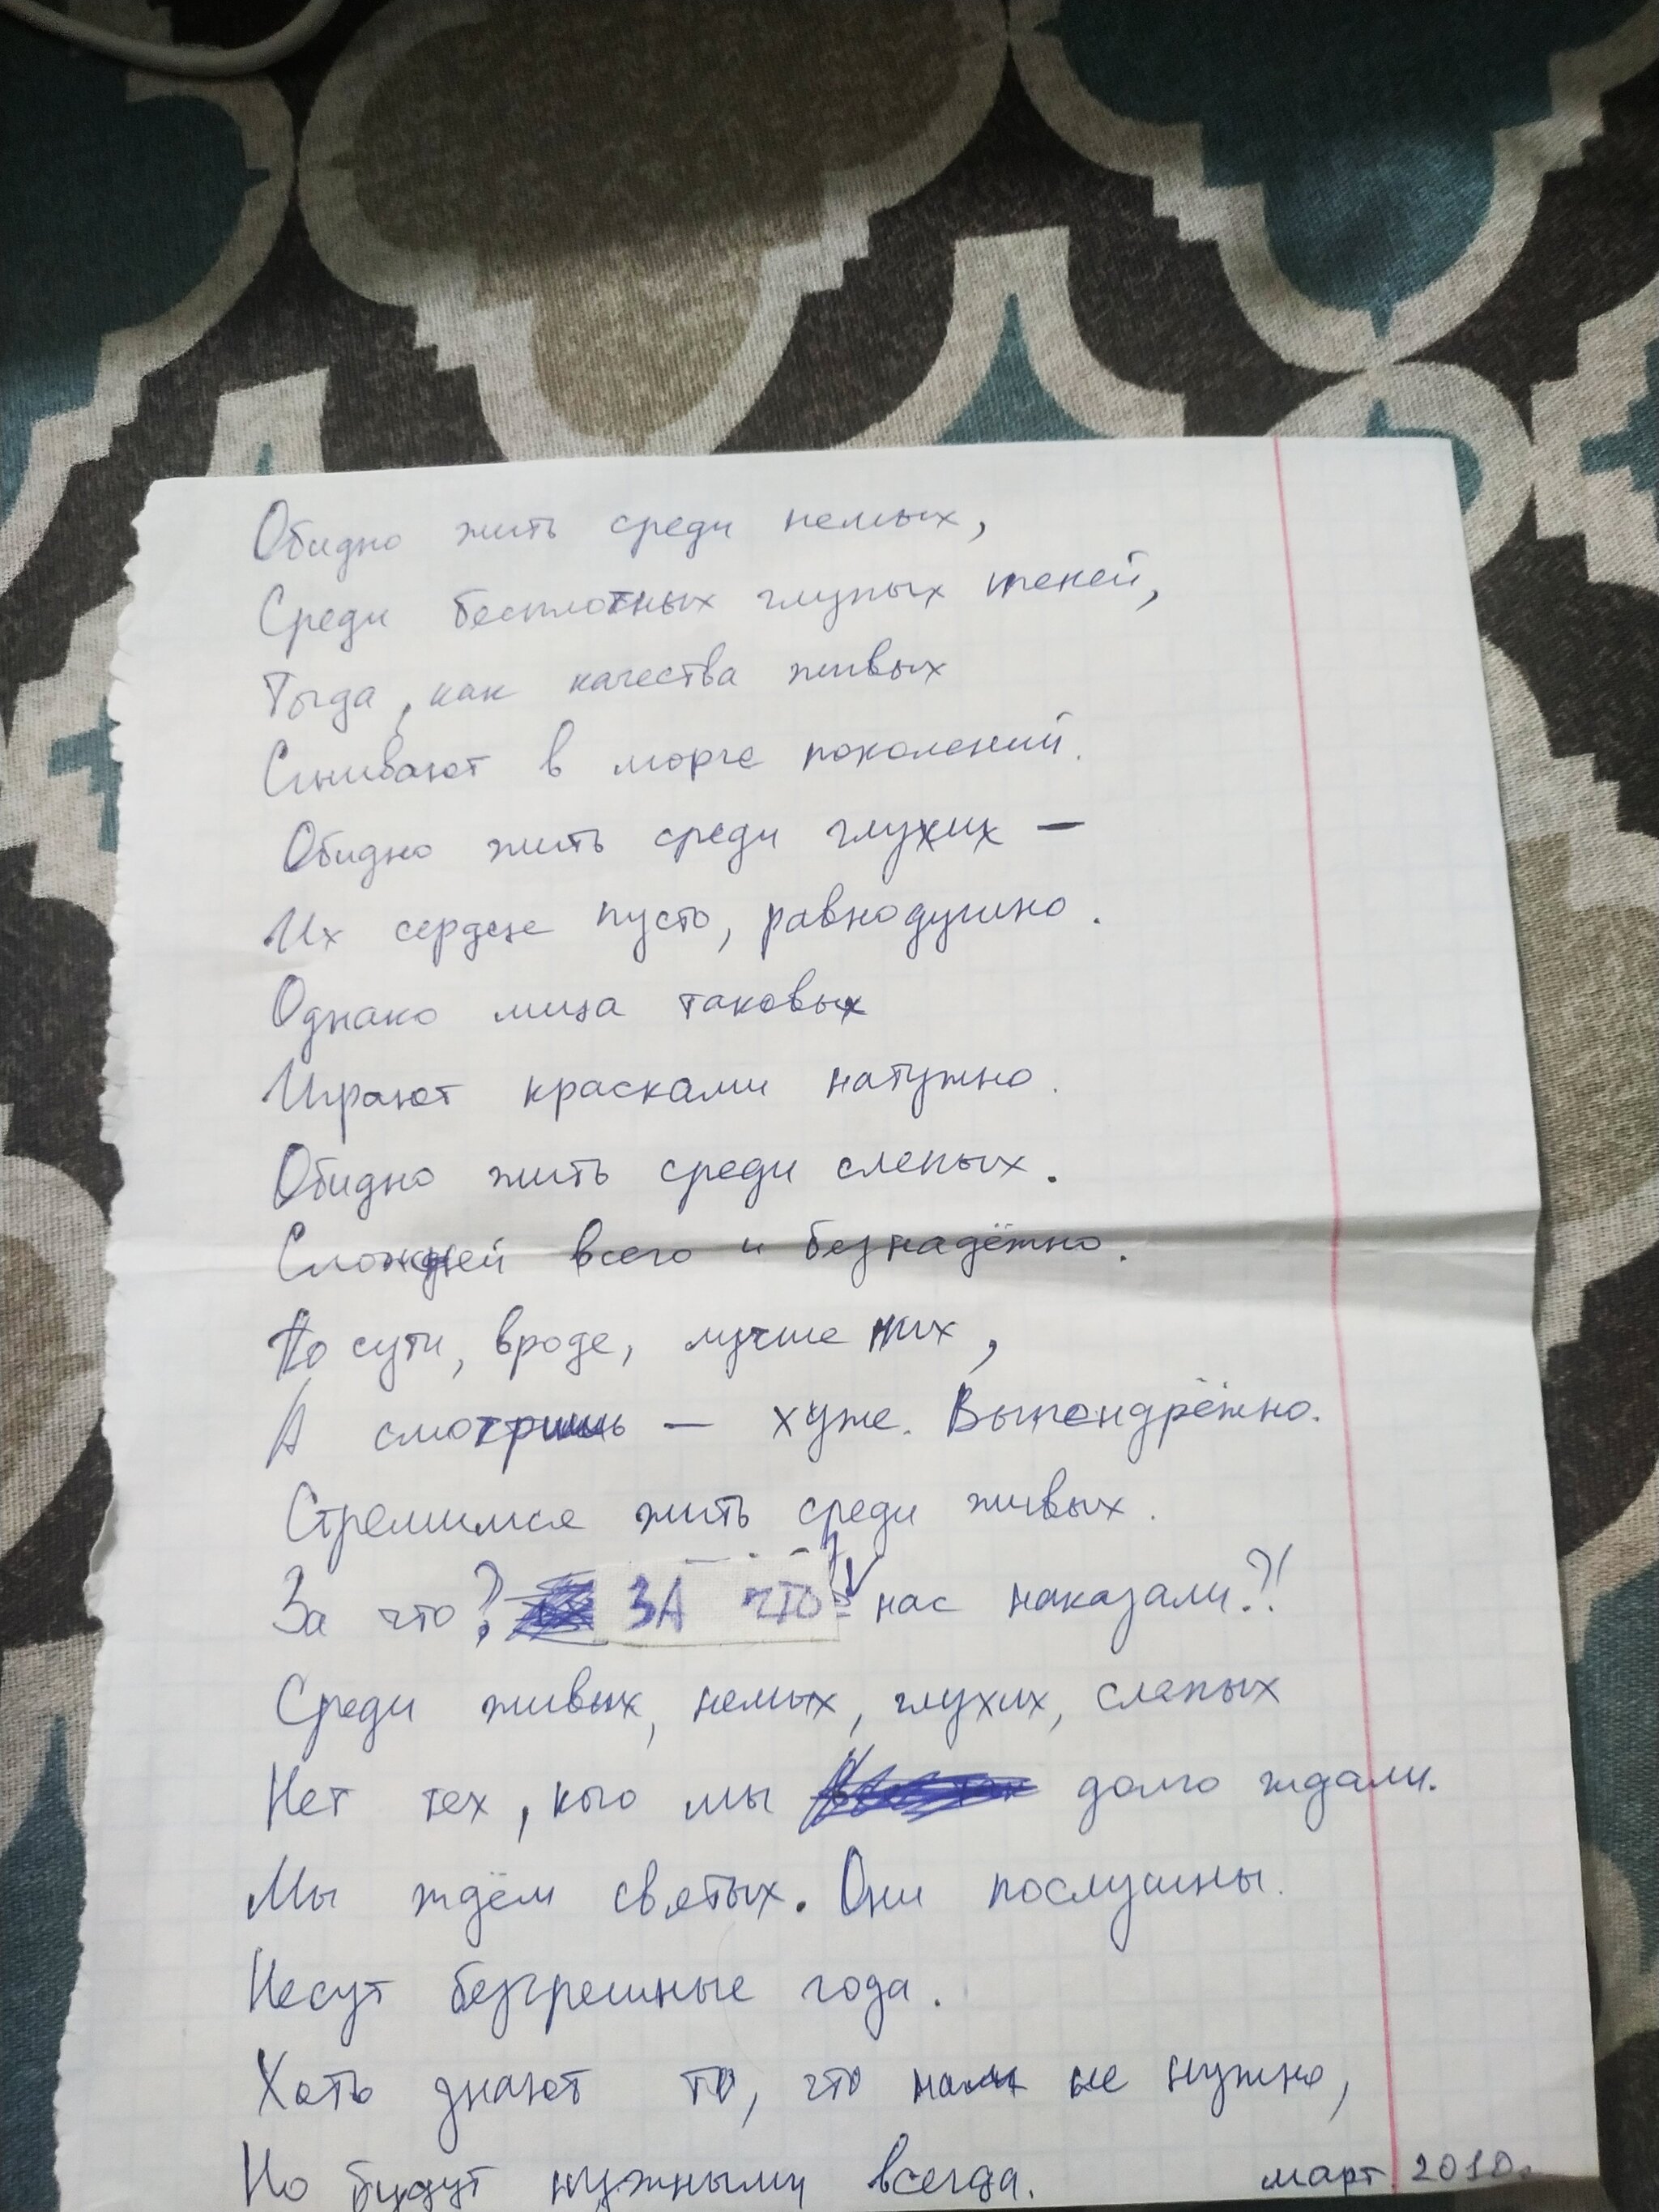 Обидно жить среди немых,
Среди бесплотных глупых теней,
Тогда, как качества живых
Сгнивают в морге поколений.
Обидно жить среди глухих —
Их сердце пусто, равнодушно.
Однако лица таковых
Играют красками натужно.
Обидно жить среди слепых.
Сложней всего и безнадёжно.
По сути, вроде, лучше них,
А смотришь — хуже. Выпендрёжно.
Стремимся жить среди живых.
За что? ЗА ЧТО нас наказали?!
Среди живых, немых, глухих, слепых
Нет тех, кого мы долго ждали.
Мы ждём святых. Они послушны.
Несут безгрешные года.
Хоть знают то, что нам не нужно,
Но будут нужными всегда.
март 2010.